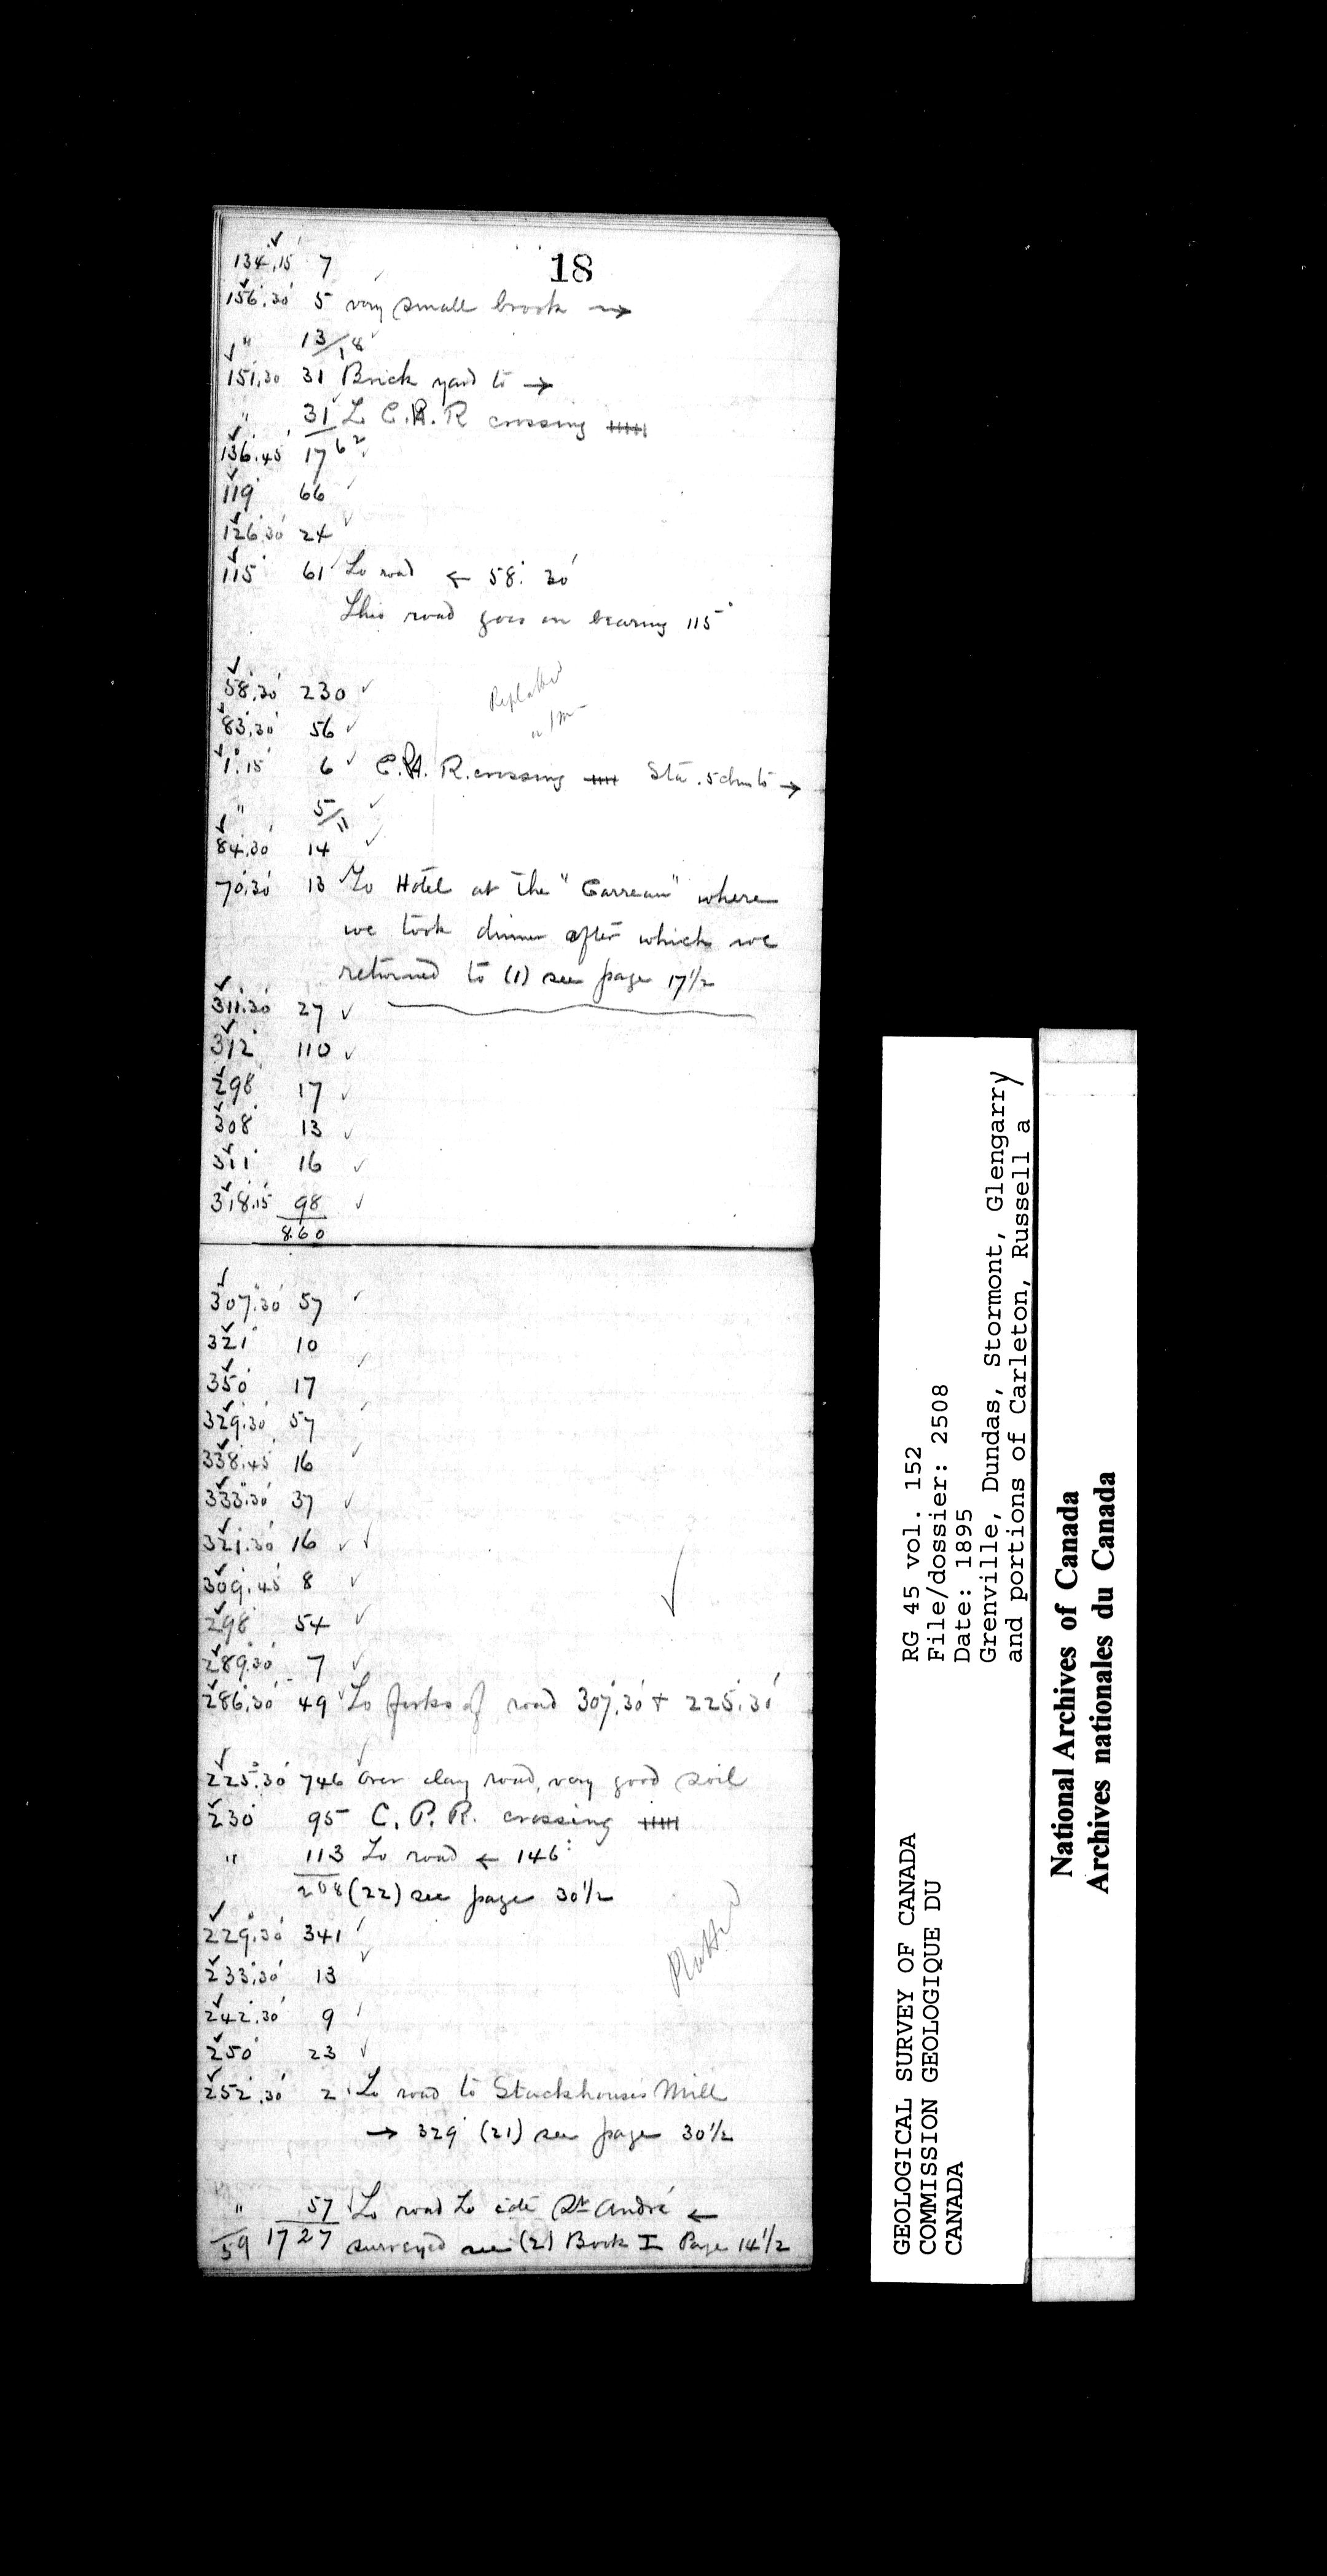 18
134°.15' 7
156°.30' 5 very small brook →
" 13/18
151°.30 31 Brick yard to →
" 31 To C.A.R crossing
62
136°.45' 17
119° 66
126°.30' 24
115° 61 To road ← 58°.30'
This road goes on bearing 115°
58°.30' 230
83°.30' 56
1°.15' 6 C.A.R. crossing Sta. 5 chns to →
" 5/11
84°.30' 14
70°.30' 13 To Hotel at the "Carreau" where
we took dinner after which we
returned to (1) see page 17½
311°.30' 27
312° 110
298° 17
308° 13
311° 16
318°.15' 98
860
307°.30' 57
321° 10
350° 17
329°.30' 57
338°.45' 16
333°.30' 37
321°.30' 16
309°.45' 8
298° 54
289°.30' 7
286°.30' 49 To forks of road 307°.30' + 225°.30'
225°.30' 746 over clay road, very good soil
230° 95 C.P.R. crossing
" 113 To road ← 146°
208 (22) see page 30½
229°.30' 341
Plotted
233°.30' 13
242°.30' 9
250° 23
252°.30' 2 To road to Stackhouses Mill
→ 329° (21) see page 30½
" 57 To road to côte St André ←
59 1727 surveyed see (2) Book I Page 14½
GEOLOGICAL SURVEY OF CANADA
COMMISSION GEOLOGIQUE DU
CANADA
RG 45 vol. 152
File/dossier: 2508
Date: 1895
Grenville, Dundas, Stormont, Glengarry
and portions of Carleton, Russell a
National Archives of Canada
Archives nationales du Canada